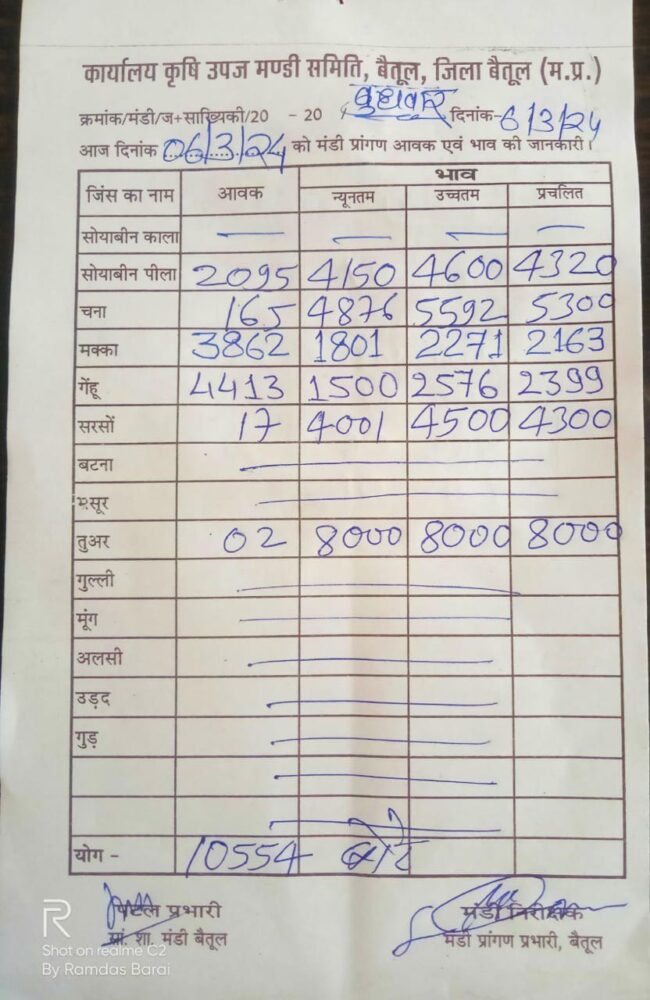 कार्यालय कृषि उपज मण्डी समिति, बैतूल, जिला बैतूल (म.प्र.)
क्रमांक/मंडी/ज+सांख्यिकी/20 - 20 बुधवार दिनांक-6/3/24
आज दिनांक 06/3/24 को मंडी प्रांगण आवक एवं भाव की जानकारी।
जिंस का नाम आवक भाव
न्यूनतम उच्चतम प्रचलित
सोयाबीन काला — — — —
सोयाबीन पीला 2095 4150 4600 4320
चना 165 4876 5592 5300
मक्का 3862 1801 2271 2163
गेंहू 4413 1500 2576 2399
सरसों 17 4001 4500 4300
बटना
मसूर
तुअर 02 8000 8000 8000
गुल्ली
मूंग
अलसी
उड़द
गुड़
योग - 10554 बोरे
पटल प्रभारी मंडी निरीक्षक
प्रां. शा. मंडी बैतूल मंडी प्रांगण प्रभारी, बैतूल
R
Shot on realme C2
By Ramdas Barai